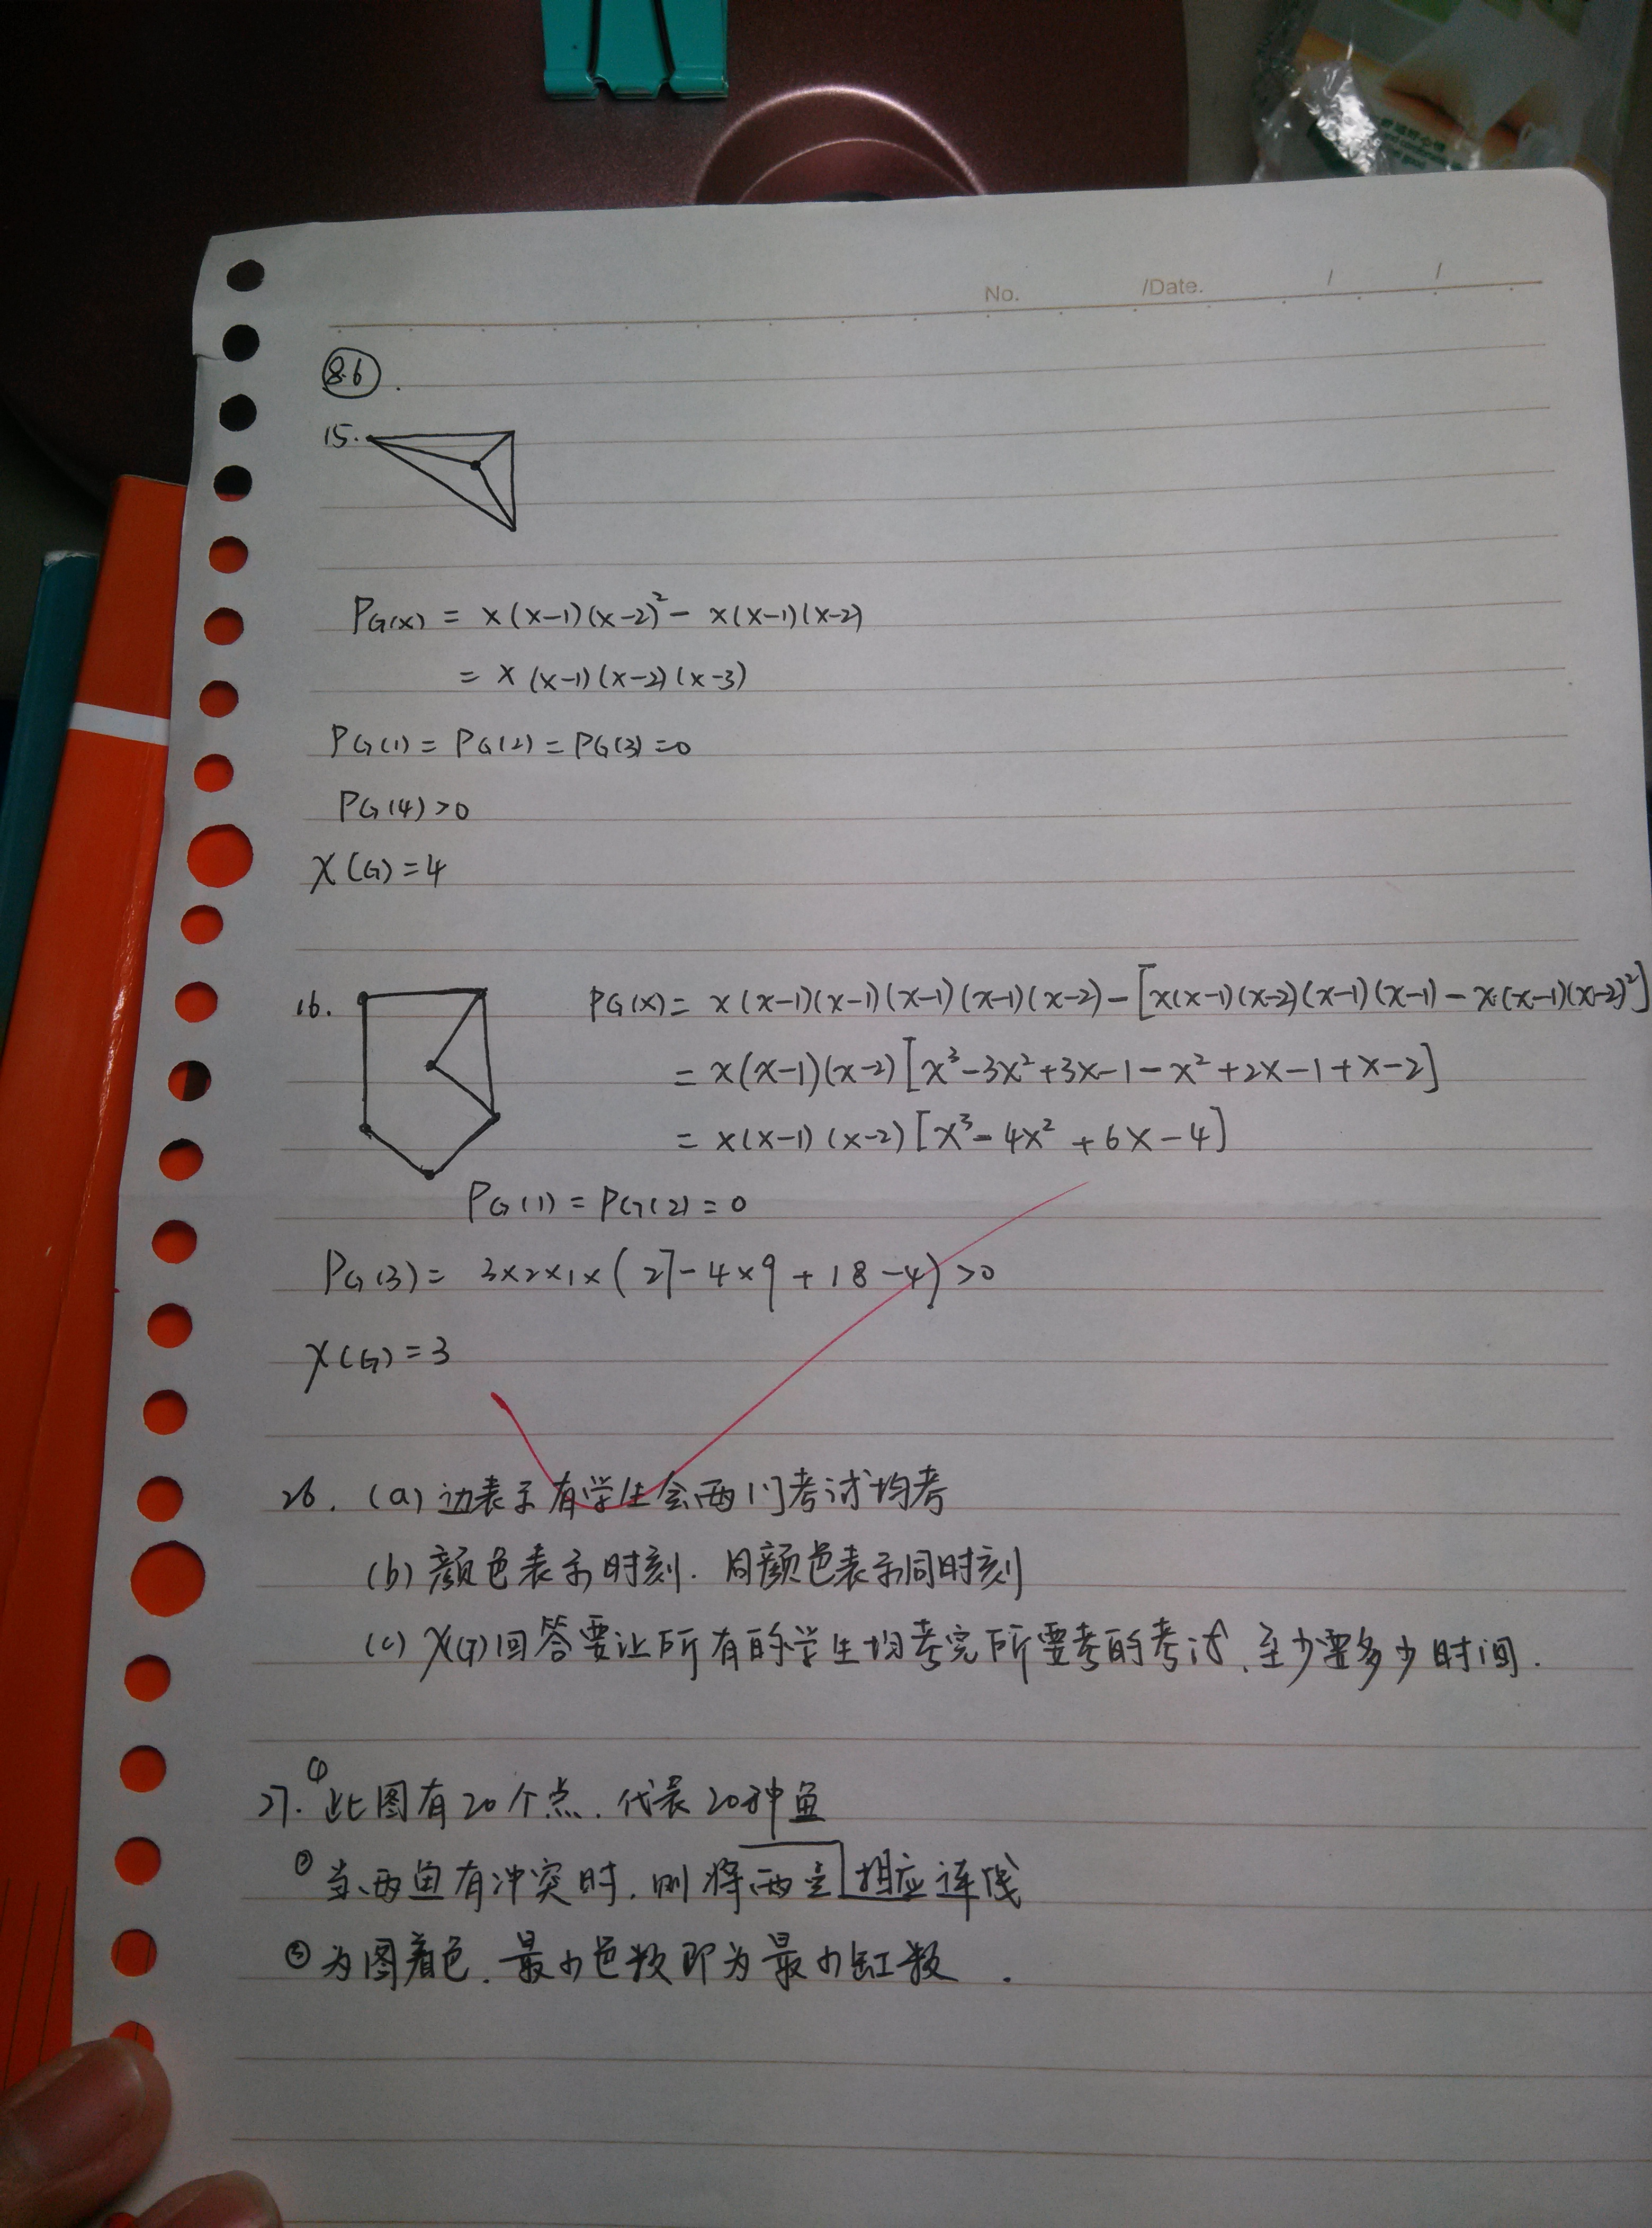 No. /Date. / /
8.6.
15.
PG(x) = x(x-1)(x-2)² - x(x-1)(x-2)
= x(x-1)(x-2)(x-3)
PG(1) = PG(2) = PG(3) = 0
PG(4) > 0
χ(G) = 4
16. PG(x) = x(x-1)(x-1)(x-1)(x-1)(x-2) - [x(x-1)(x-2)(x-1)(x-1) - x·(x-1)(x-2)²]
= x(x-1)(x-2)[x³-3x²+3x-1-x²+2x-1+x-2]
= x(x-1)(x-2)[x³-4x²+6x-4]
PG(1) = PG(2) = 0
PG(3) = 3×2×1×(27-4×9+18-4) > 0
χ(G) = 3
26. (a) 边表示有学生会两门考试均考
(b) 颜色表示时刻. 同颜色表示同时刻
(c) χ(G)回答要让所有的学生均考完所要考的考试、至少要多少时间.
27. ① 此图有20个点. 代表20种鱼
② 当两鱼有冲突时, 则将两点相应连线
③ 为图着色. 最少色数即为最少缸数.